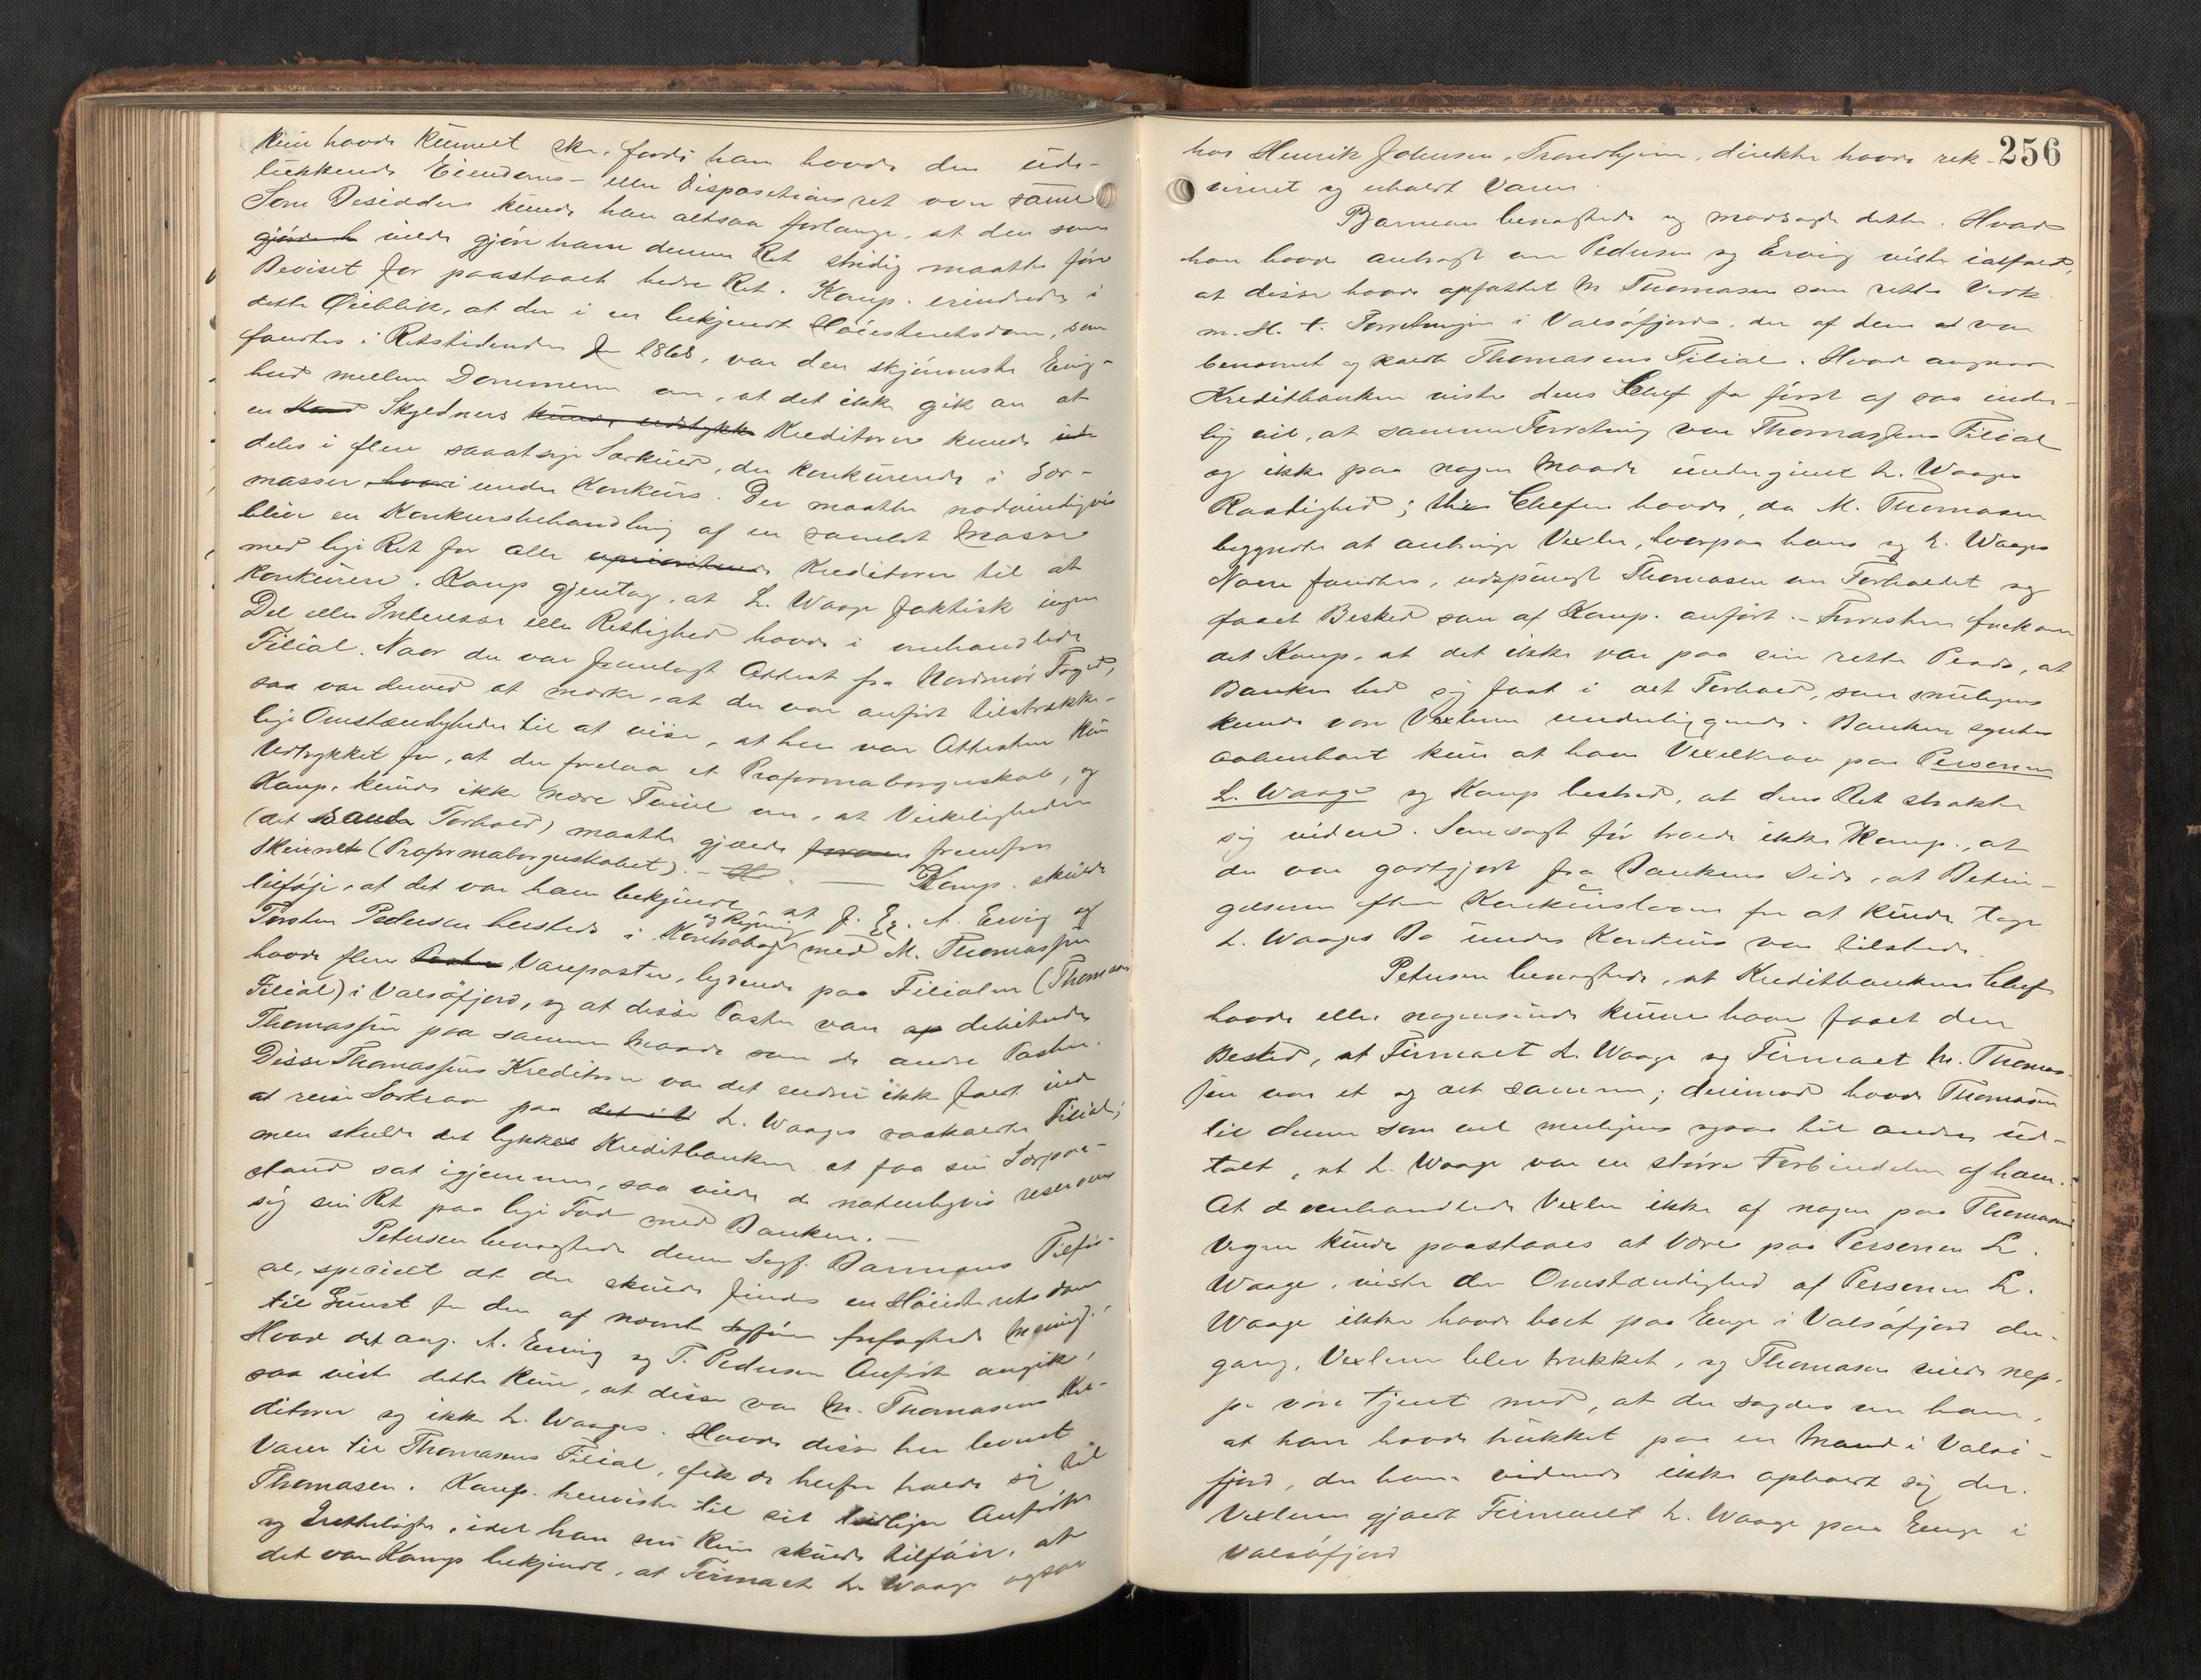 kun havde kunnet ske, fordi han havde den ude-
lukkende Eiendoms- eller Dispositionsret over samme
Som Desidder kunde han altsaa forlange, at den som
vilde gjøre ham denne Ret stridig maatte føre
Beviset for paastaaet bedre Ret. Komp. erindrede i
dette Øieblik, at der i en bekjendt Høiesteretsdom, som
fandtes i Retstidende for 1868, var den skjønneste Enig-
hed mellem Dommerne om, at det ikke gik an at
en Skyldners Kreditorer kunde
deles i flere saadanne Særkrav, der konkurrerede i Sær-
masser under Konkurs. Der maatte nødvendigvis
blive en Konkursbehandling af en samlet Masse
med lige Ret for alle Kreditorer til at
konkurrere. Komp gjentog, at L. Waage faktisk ingen
Del eller Interesse eller Rettighed havde i omhandlede
Filial. Naar der var fremlagt Attest fra Nordmør Fogd,
saa var derved at mærke, at der var anført tilstrække-
lige Omstændigheder til at vise, at her var Attesten kun
Udtrykket for, at der forelaa et Proformaborgerskab, og
Komp. kunde ikke nære Tvivl om, at Virkeligheden
(det sande Forhold) maatte gjælde fremfor
Skinnet (Proformaborgerskabet). – Komp. skulde
tilføje, at det var ham bekjendt at J. Eg. A. Ervig og
Torsten Pedersen hersteds i Kontrabog og Regning med M. Thomassen
havde flere Vareposter, lydende paa Filialen (Thomasens
Filial) i Valsøfjord, og at disse Poster vare debiterede
Thomassen paa samme Maade som de andre Poster.
Disse Thomassens Kreditorer var det endnu ikke faldt ind
at reise Særkrav paa L. Waages saakaldte Filial;
men skulde det lykkes Kreditbanken at faa sin Særpaa-
stand sat igjennem, saa vilde de naturligvis reservere
sig sin Ret paa lige Fod med Banken. –
Petersen benægtede denne Sagf. Barmans Tilfør-
sel, specielt at der skulde findes en Høiesteretsdom
til Gunst for den af nævnte Sagfører forfægtede Mening.
Hvad det ang. A. Ervig og T. Pedersen Anførte angik,
saa viste dette kun, at disse var M. Thomasens Kre-
ditorer og ikke L. Waages. Havde disse her levnet
Varer til Thomasens Filial, fik de herfor holde sig til
Thomasen. Komp. henviste til sit tidligere Anførte
og Fremlagte, idet han nu kun skulde tilføie, at
det var Komp bekjendt, at Firmaet L. Waage ogsaa
256
hos Henrik Johnsen, Trondhjem, direkte havde rek-
vireret og erholdt Varer.
Barman benægtede og modsagde dette. Hvad
han havde anbragt om Pedersen og Ervig viste ialfald,
at disse havde opfattet M Thomasen som rette Vedk.
m. H. t. Forretningen i Valsøfjord, der af dem var
benævnt og kaldt Thomasens Filial. Hvad angaar
Kreditbanken vidste dens Chef fra først af saa inder-
lig vel, at samme Forretning var Thomassens Filial
og ikke paa nogen Maade undergivet L. Waages
Raadighed; thi Chefen havde, da M. Thomasen
begyndte at anbringe Vexler, hvorpaa hans og L. Waages
Navn fandtes, udspurgt Thomasen om Forholdet og
faaet Besked som af Komp. anført. – Forresten forekom
det Komp. at det ikke var paa sin rette Plads, at
Banken lod sig faat i det Forhold, som muligens
kunde være Vexlerne underliggende. Banken syntes
aabenbart kun at have Vexelkrav paa Personen
L. Waage og Komp bestred, at dens Ret strakte
sig videre. Som sagt før troede ikke Komp., at
der var godtgjort fra Bankens Side, at Betin-
gelserne efter Konkursloven for at kunde tage
L. Waages Bo under Konkurs var tilstede.
Petersen benægtede, at Kreditbankens Chef
havde eller nogensinde kunne have faaet den
Besked, at Firmaet L. Waage og Firmaet M. Thomas-
sen var et og det samme; derimod havde Thomasen
til denne som vel muligens ogsaa til andre ud-
talt, at L. Waage var en større Forbindelse af ham.
At de omhandlede Vexler ikke af nogen paa Thomasens
Vegne kunde paastaaes at være paa Personen L.
Waage, viste den Omstændighed at Personen L.
Waage ikke havde boet paa Enge i Valsøfjord den-
gang, Vexlerne blev trukket, og Thomasen vilde nep-
pe være tjent med, at der sagdes om ham,
at han havde trukket paa en Mand i Valsø-
fjord, der hans vidende ikke opholdt sig der.
Vexlerne gjaldt Firmaet L. Waage paa Enge i
Valsøfjord